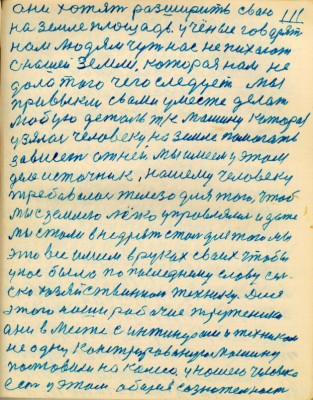 они хотят разширить свою 111
на земле площадь. учёные говорят
нам людям чут нас не пихают
с нашей земли, которая нам не
дала того чего следует мы
привыкли с вами уместе делат
любую деталь т,к машину которая
узялас человеку на земле помогать
зависет от ней. мы имеем у этом
деле источник, нашему человеку
требавалос железо для того, чтоб
мы с землёю лёгко управлялис и даже
мы стали в недрах стоит для того мы
это все имеем в руках своих чтобы
у нас было по последнему слову се-
ско хозяйственною технику. Для
этого наши рабочие труженики
ани в месте с интинерами и техником
не одну конструированую машину
поставили на колеса у нашего человека
ест у этом общая сознателност